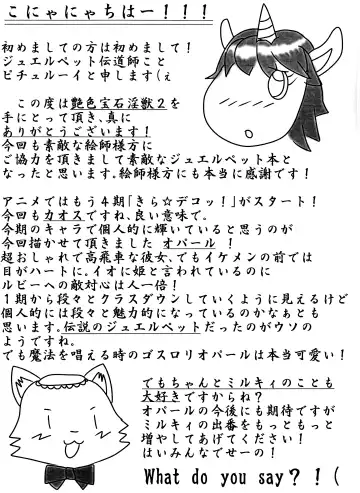 こにゃにゃちはー！！！
初めましての方は初めまして！
ジュエルペット伝道師こと
ピチュルーイと申します(ぇ
この度は艶色宝石淫獣２を
手にとって頂き､真に
ありがとうございます！
今回も素敵な絵師様方に
ご協力を頂きまして素敵なジュエルペット本と
なったと思います｡絵師様方にも本当に感謝です！
アニメではもう４期｢きら☆デコッ！｣がスタート！
今回もカオスですね､良い意味で。
今期のキャラで個人的に輝いていると思うのが
今回描かせて頂きました オパール ！
超おしゃれで高飛車な彼女､でもイケメンの前では
目がハートに｡イオに姫と言われているのに
ルビーへの敵対心は人一倍！
１期から段々とクラスダウンしていくように見えるけど
個人的には段々と魅力的になっているのかなぁとも
思います｡伝説のジュエルペットだったのがウソの
ようですね。
でも魔法を唱える時のゴスロリオパールは本当可愛い！
でもちゃんとミルキィのことも
大好きですからね？
オパールの今後にも期待ですが
ミルキィの出番をもっともっと
増やしてあげてください！
はいみんなでせーの！
What do you say？！(